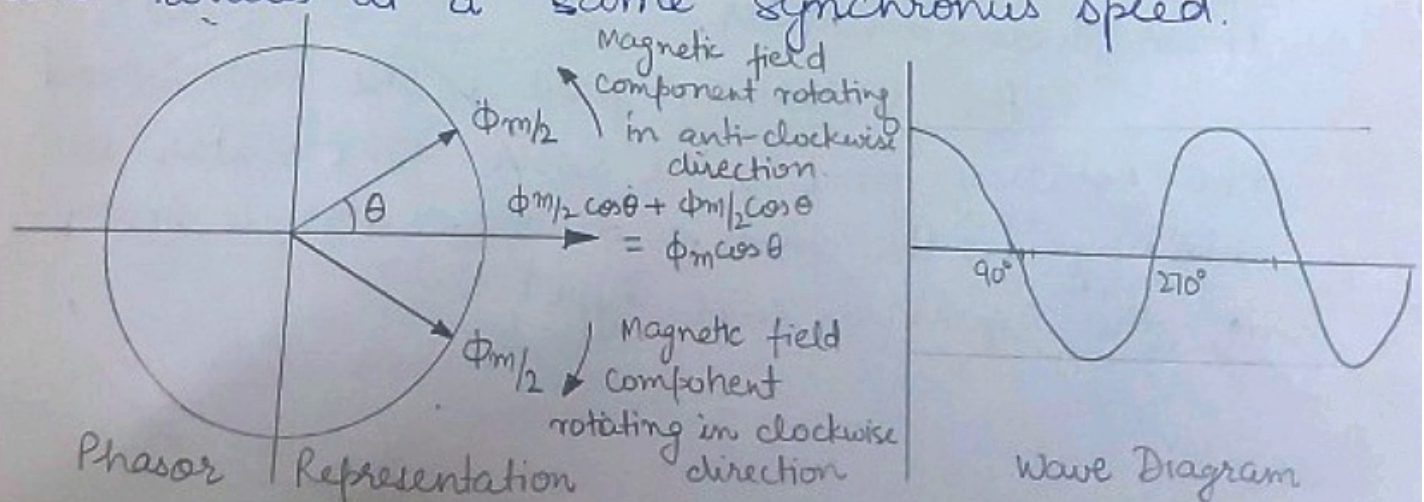 a same synchronus speed.
Magnetic field
component rotating
in anti-clockwise
direction
Φm/2
θ
Φm/2 cosθ + Φm/2 cosθ
= Φm cosθ
Φm/2
Magnetic field
component
rotating in clockwise
direction
Phasor Representation
90°
270°
Wave Diagram